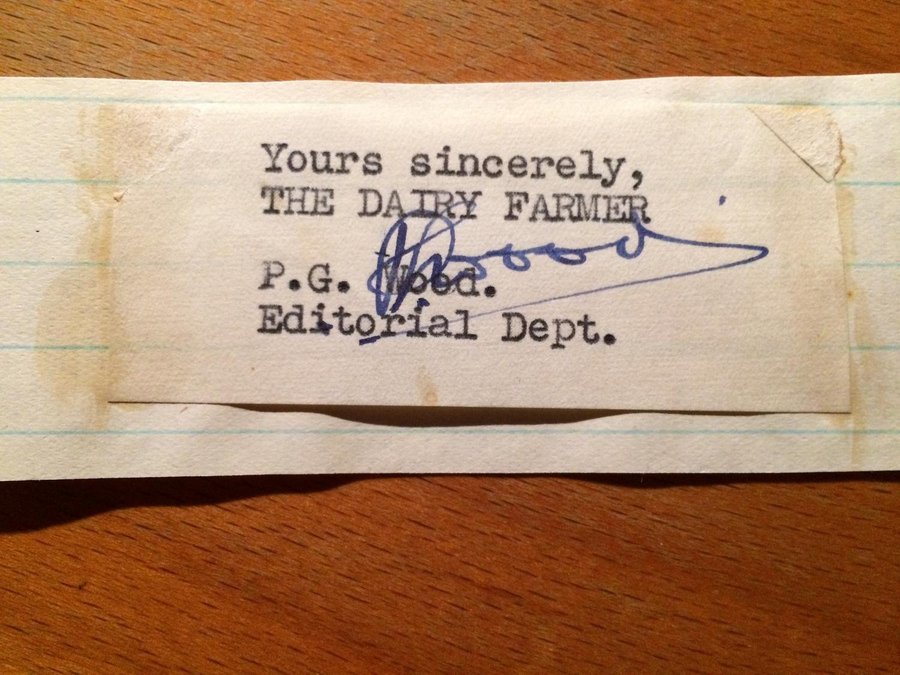 Yours sincerely,
THE DAIRY FARMER
P.G. Wood.
Editorial Dept.